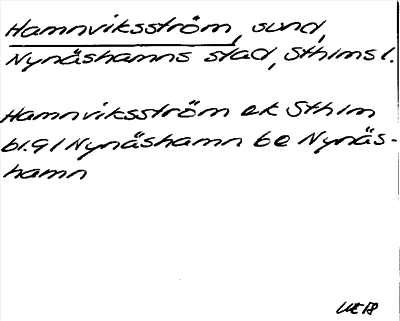 Hamnviksström, sund,
Nynäshamns stad, Sthlms l.
Hamnviksström ek Sthlm
bl. 91 Nynäshamn be Nynäs-
hamn